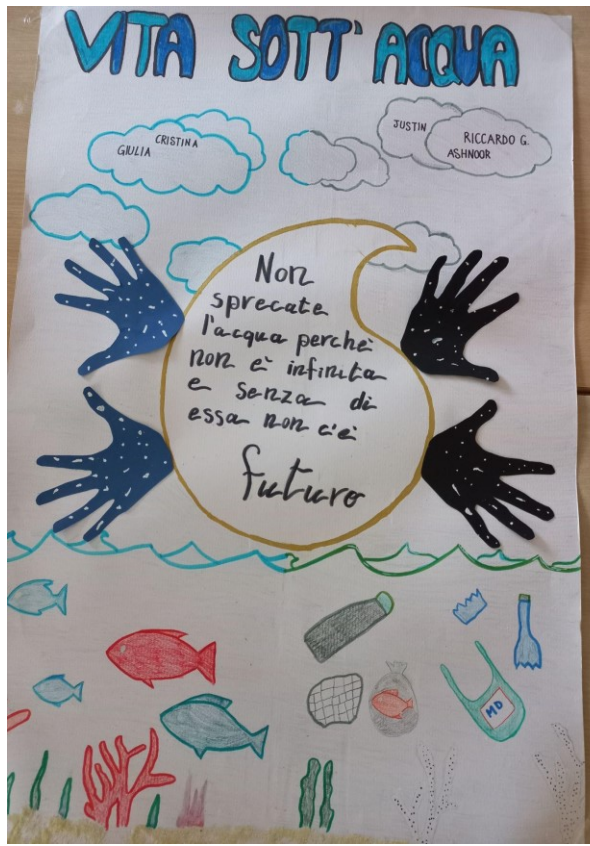 VITA SOTT' ACQUA
CRISTINA
GIULIA
JUSTIN
RICCARDO G.
ASHNOOR
Non
sprecate
l'acqua perchè
non è infinita
e senza di
essa non c'è
futuro
MD